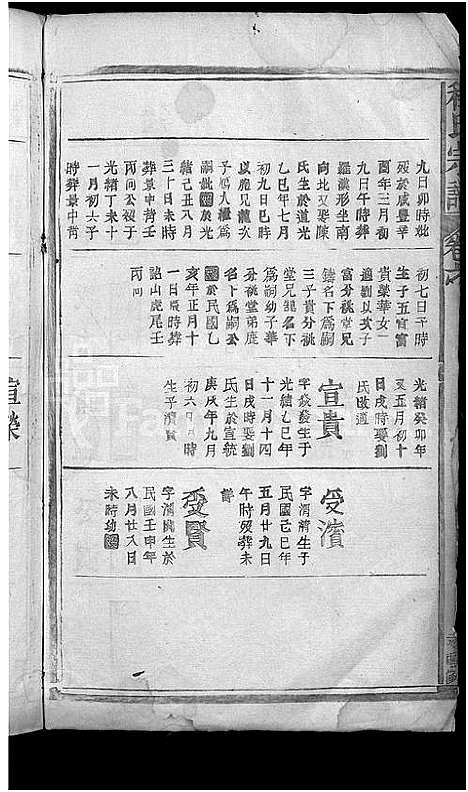 九日卯時妣
歿於咸豐辛
酉年三月初
九日午時葬
羅漢形坐南
向北又娶陳
氏生於道光
乙巳年七月
初九日巳時
以鹿兄龍次
子
於光
緒己丑八月
三十日未時
葬景中嵜壬
丙向公歿于
光緒丁未十
一月初六子
時葬景中嵜
初七日午時
生子五宣富
貴榮華女一
適劉以英子
富分祧堂兄
鏡名下爲嗣
三子貴分祧
堂兄龍名下
爲嗣幼子華
分祧堂弟鹿
名下爲嗣公
國於民國乙
亥年正月十
一日辰時葬
詔山虎尾壬
丙向
光緒癸卯年
又五月初十
日戌時娶劉
氏改適
宣貴
字發發生于
光緒乙巳年
十一月十四
日戌時娶劉
氏生於宣統
庚戌年九月
初六日時
生子濟賢
受濟
字渭濟生于
民國己巳年
五月廿九日
午時歿葬未
詳
受賢
字渭興生於
民國壬申年
八月廿八日
未時幼
宗譜 卷之
宣榮